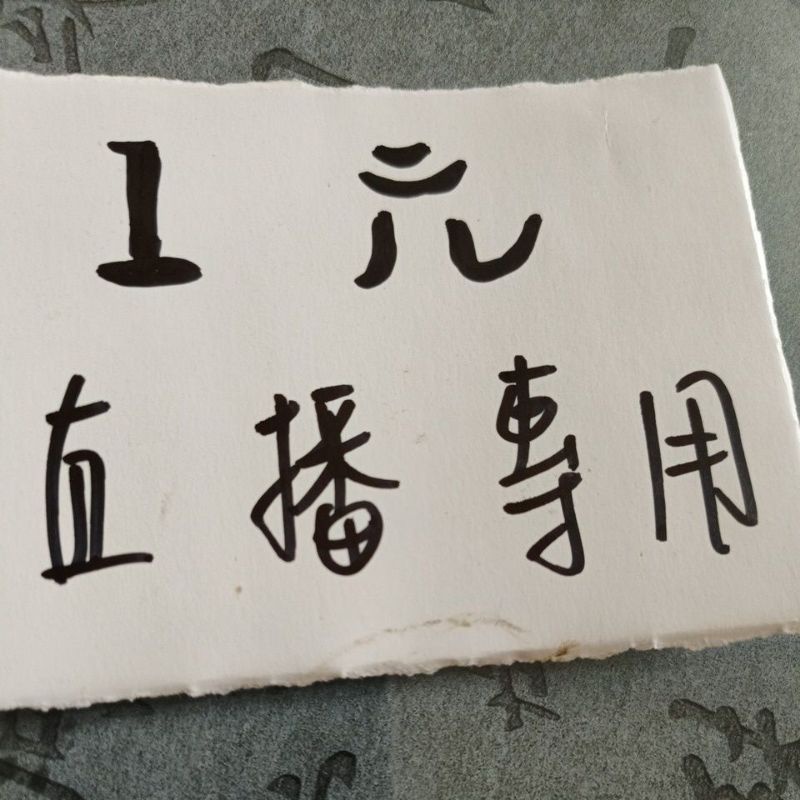 1元
直播專用